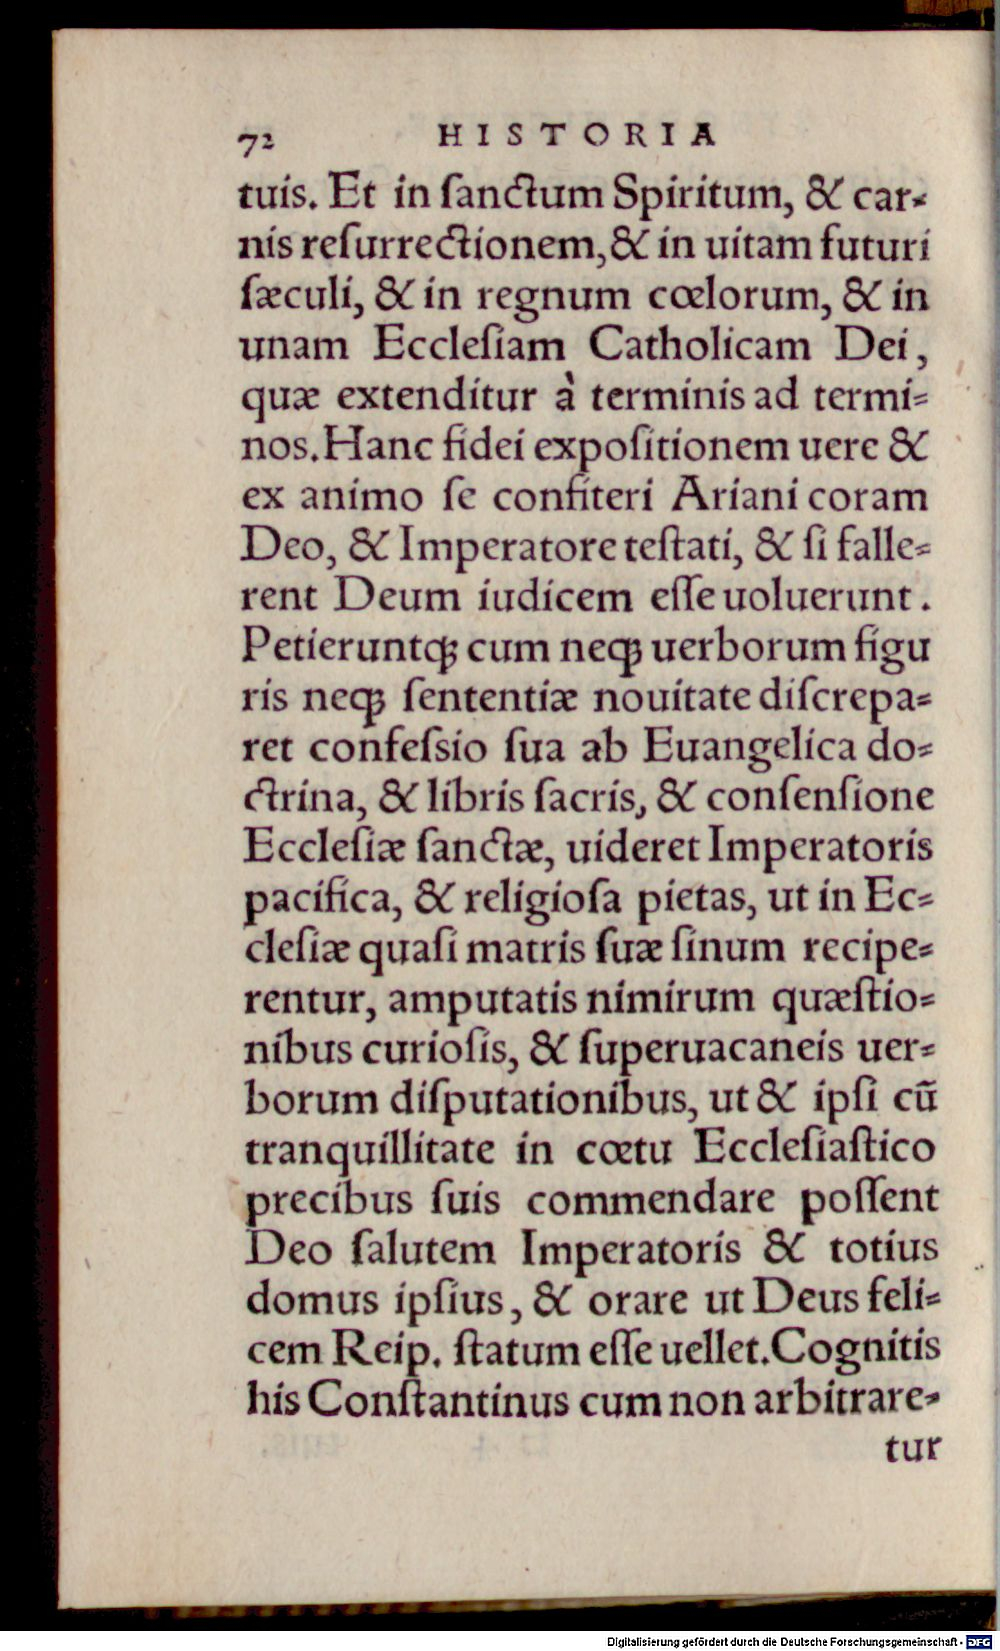 72 HISTORIA
tuis. Et in ſanctum Spiritum, & car-
nis reſurrectionem, & in uitam futuri
ſæculi, & in regnum cœlorum, & in
unam Eccleſiam Catholicam Dei,
quæ extenditur à terminis ad termi-
nos. Hanc fidei expoſitionem uere &
ex animo ſe confiteri Ariani coram
Deo, & Imperatore teſtati, & ſi falle-
rent Deum iudicem eſſe uoluerunt.
Petieruntq́; cum neq; uerborum figu
ris neq; ſententiæ nouitate diſcrepa-
ret confeſsio ſua ab Euangelica do-
ctrina, & libris ſacris, & conſenſione
Eccleſiæ ſanctæ, uideret Imperatoris
pacifica, & religioſa pietas, ut in Ec-
cleſiæ quaſi matris ſuæ ſinum recipe-
rentur, amputatis nimirum quæſtio-
nibus curioſis, & ſuperuacaneis uer-
borum diſputationibus, ut & ipſi cũ
tranquillitate in cœtu Eccleſiaſtico
precibus ſuis commendare poſſent
Deo ſalutem Imperatoris & totius
domus ipſius, & orare ut Deus feli-
cem Reip. ſtatum eſſe uellet. Cognitis
his Conſtantinus cum non arbitrare-
tur
Digitalisierung gefördert durch die Deutsche Forschungsgemeinschaft - DFG